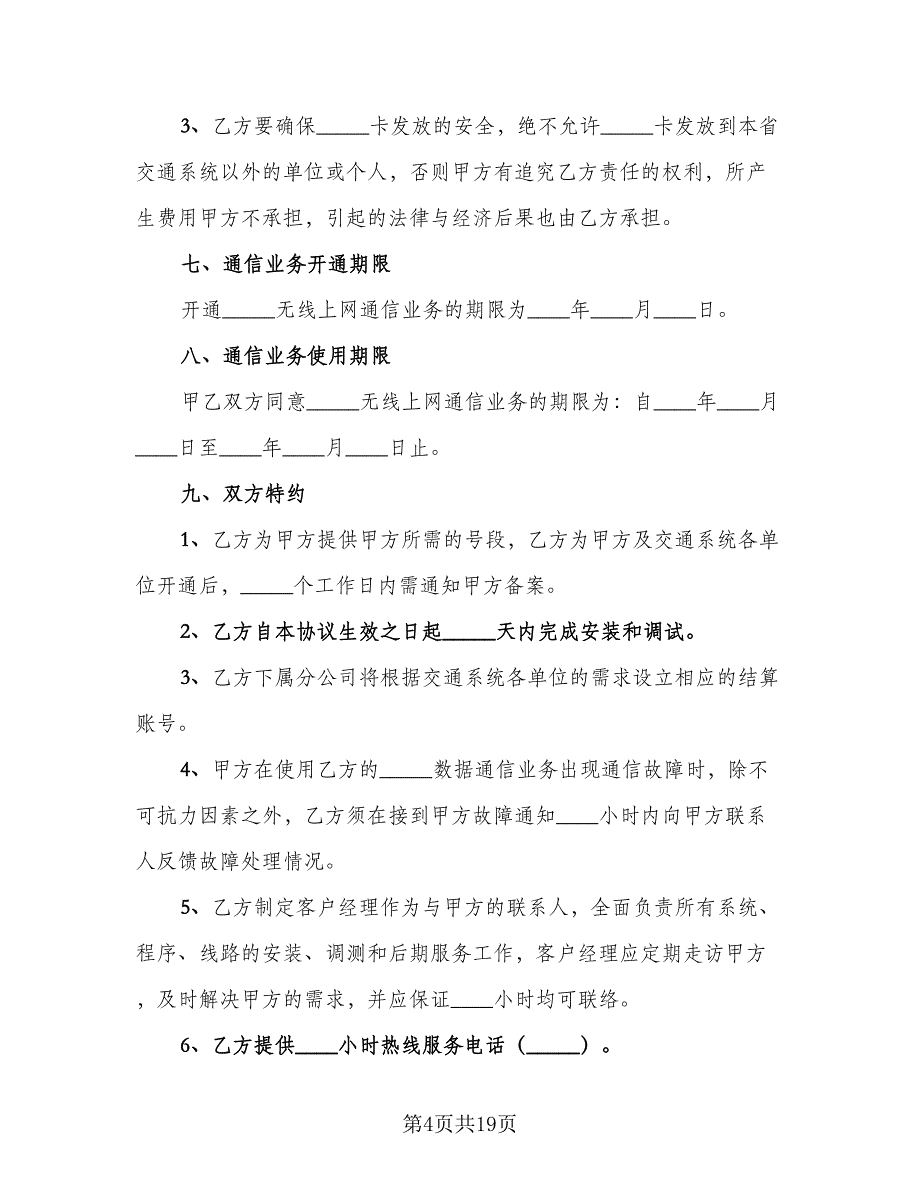 3、乙方要确保_____卡发放的安全，绝不允许_____卡发放到本省
交通系统以外的单位或个人，否则甲方有追究乙方责任的权利，所产
生费用甲方不承担，引起的法律与经济后果也由乙方承担。
七、通信业务开通期限
开通_____无线上网通信业务的期限为____年____月____日。
八、通信业务使用期限
甲乙双方同意_____无线上网通信业务的期限为：自____年____月
____日至____年____月____日止。
九、双方特约
1、乙方为甲方提供甲方所需的号段，乙方为甲方及交通系统各单
位开通后，_____个工作日内需通知甲方备案。
2、乙方自本协议生效之日起_____天内完成安装和调试。
3、乙方下属分公司将根据交通系统各单位的需求设立相应的结算
账号。
4、甲方在使用乙方的_____数据通信业务出现通信故障时，除不
可抗力因素之外，乙方须在接到甲方故障通知____小时内向甲方联系
人反馈故障处理情况。
5、乙方制定客户经理作为与甲方的联系人，全面负责所有系统、
程序、线路的安装、调测和后期服务工作，客户经理应定期走访甲方
，及时解决甲方的需求，并应保证____小时均可联络。
6、乙方提供____小时热线服务电话（_____）。
第4页共19页